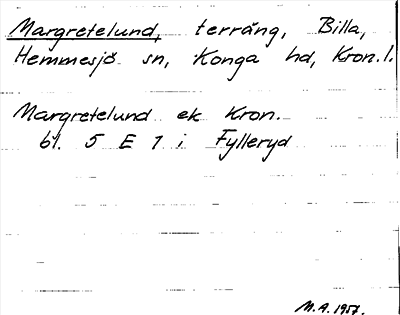 Margretelund, terräng, Billa,
Hemmesjö sn, Konga hd, Kron. l.
Margretelund ek Kron.
bl. 5 E 1 i Fylleryd
M.A. 1957.